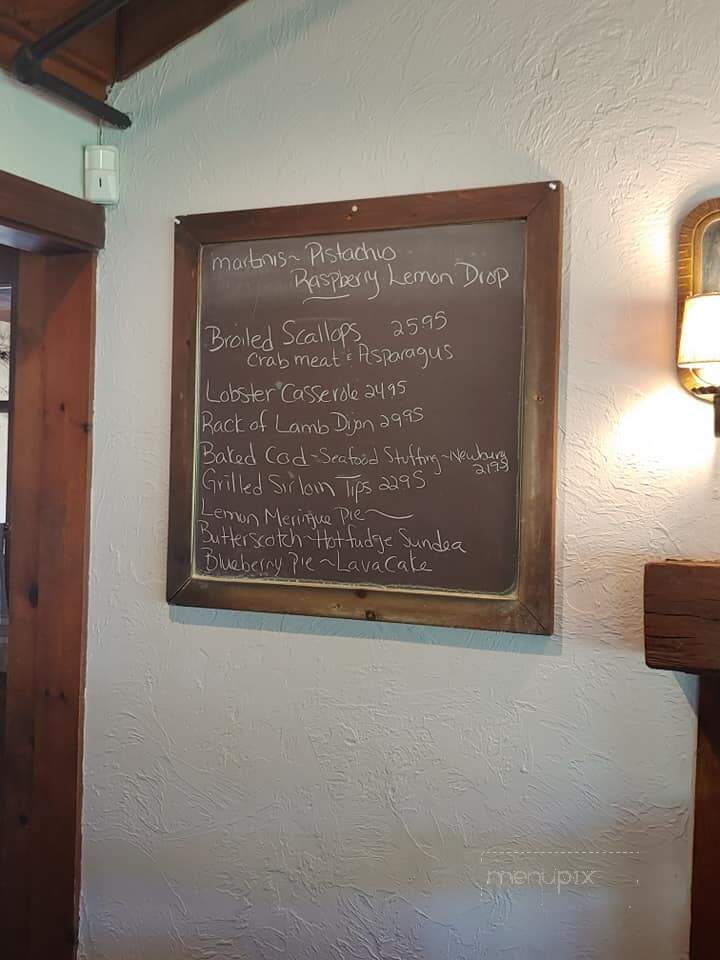 martinis ~ Pistachio
Raspberry Lemon Drop
Broiled Scallops 25.95
Crab meat & Asparagus
Lobster Casserole 24 95
Rack of Lamb Dijon 29 95
Baked Cod ~ Seafood Stuffing ~ Newburg
21 95
Grilled Sirloin Tips 22 95
Lemon Meringue Pie ~
Butterscotch ~ Hot fudge Sundea
Blueberry Pie ~ Lava Cake
menupix